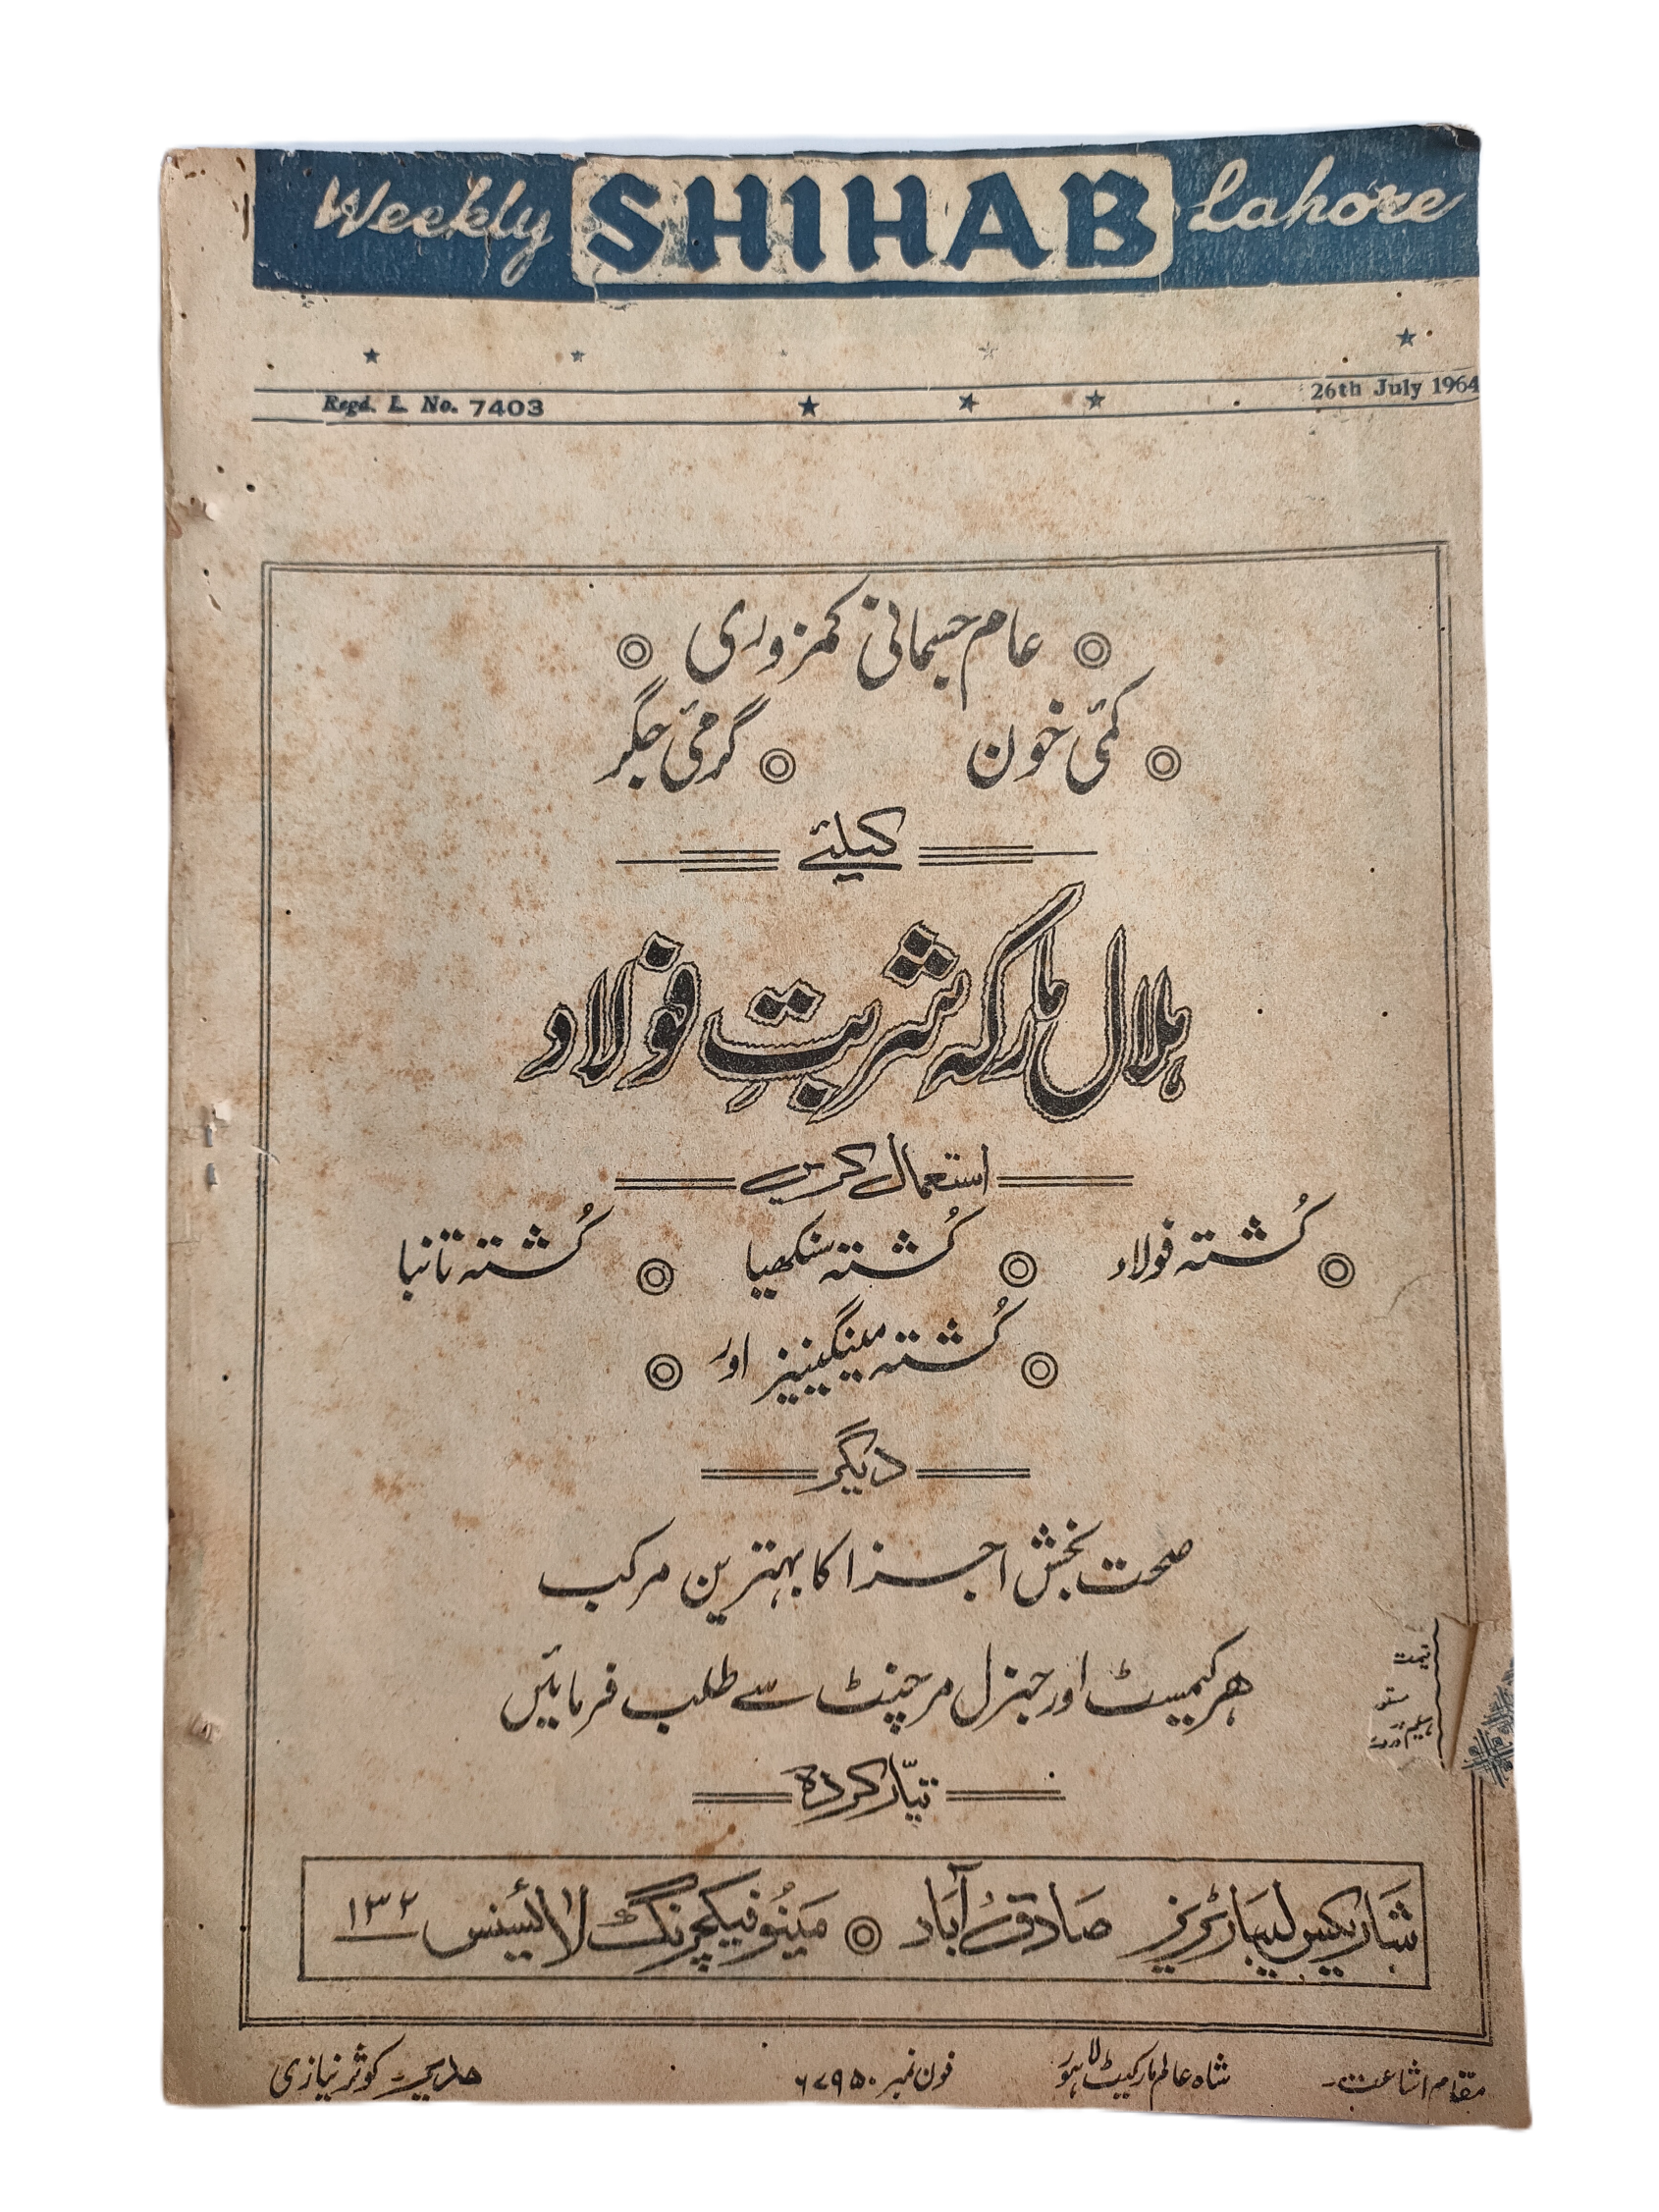 Weekly SHIHAB Lahore
Regd. L. No. 7403 26th July 1964
عام جسمانی کمزوری
کمئی خون گرمئی جگر
کیلئے
ہلال مارکہ شربتِ فولاد
استعمال کریں
کُشتہ فولاد کُشتہ سنکھیا کُشتہ تانبا
کُشتہ مینگنیز اور
دیگر
صحت بخش اجزا کا بہترین مرکب
ہر کیمسٹ اور جنرل مرچنٹ سے طلب فرمائیں
قیمت
تیّار کردہ
شاریکس لیبارٹریز صادق آباد مینُوفیکچرنگ لائسینس ۱۳۲
مقام اشاعت۔ شاہ عالم مارکیٹ لاہور فون نمبر ۶۷۹۵۰ مدیر۔ کوثر نیازی